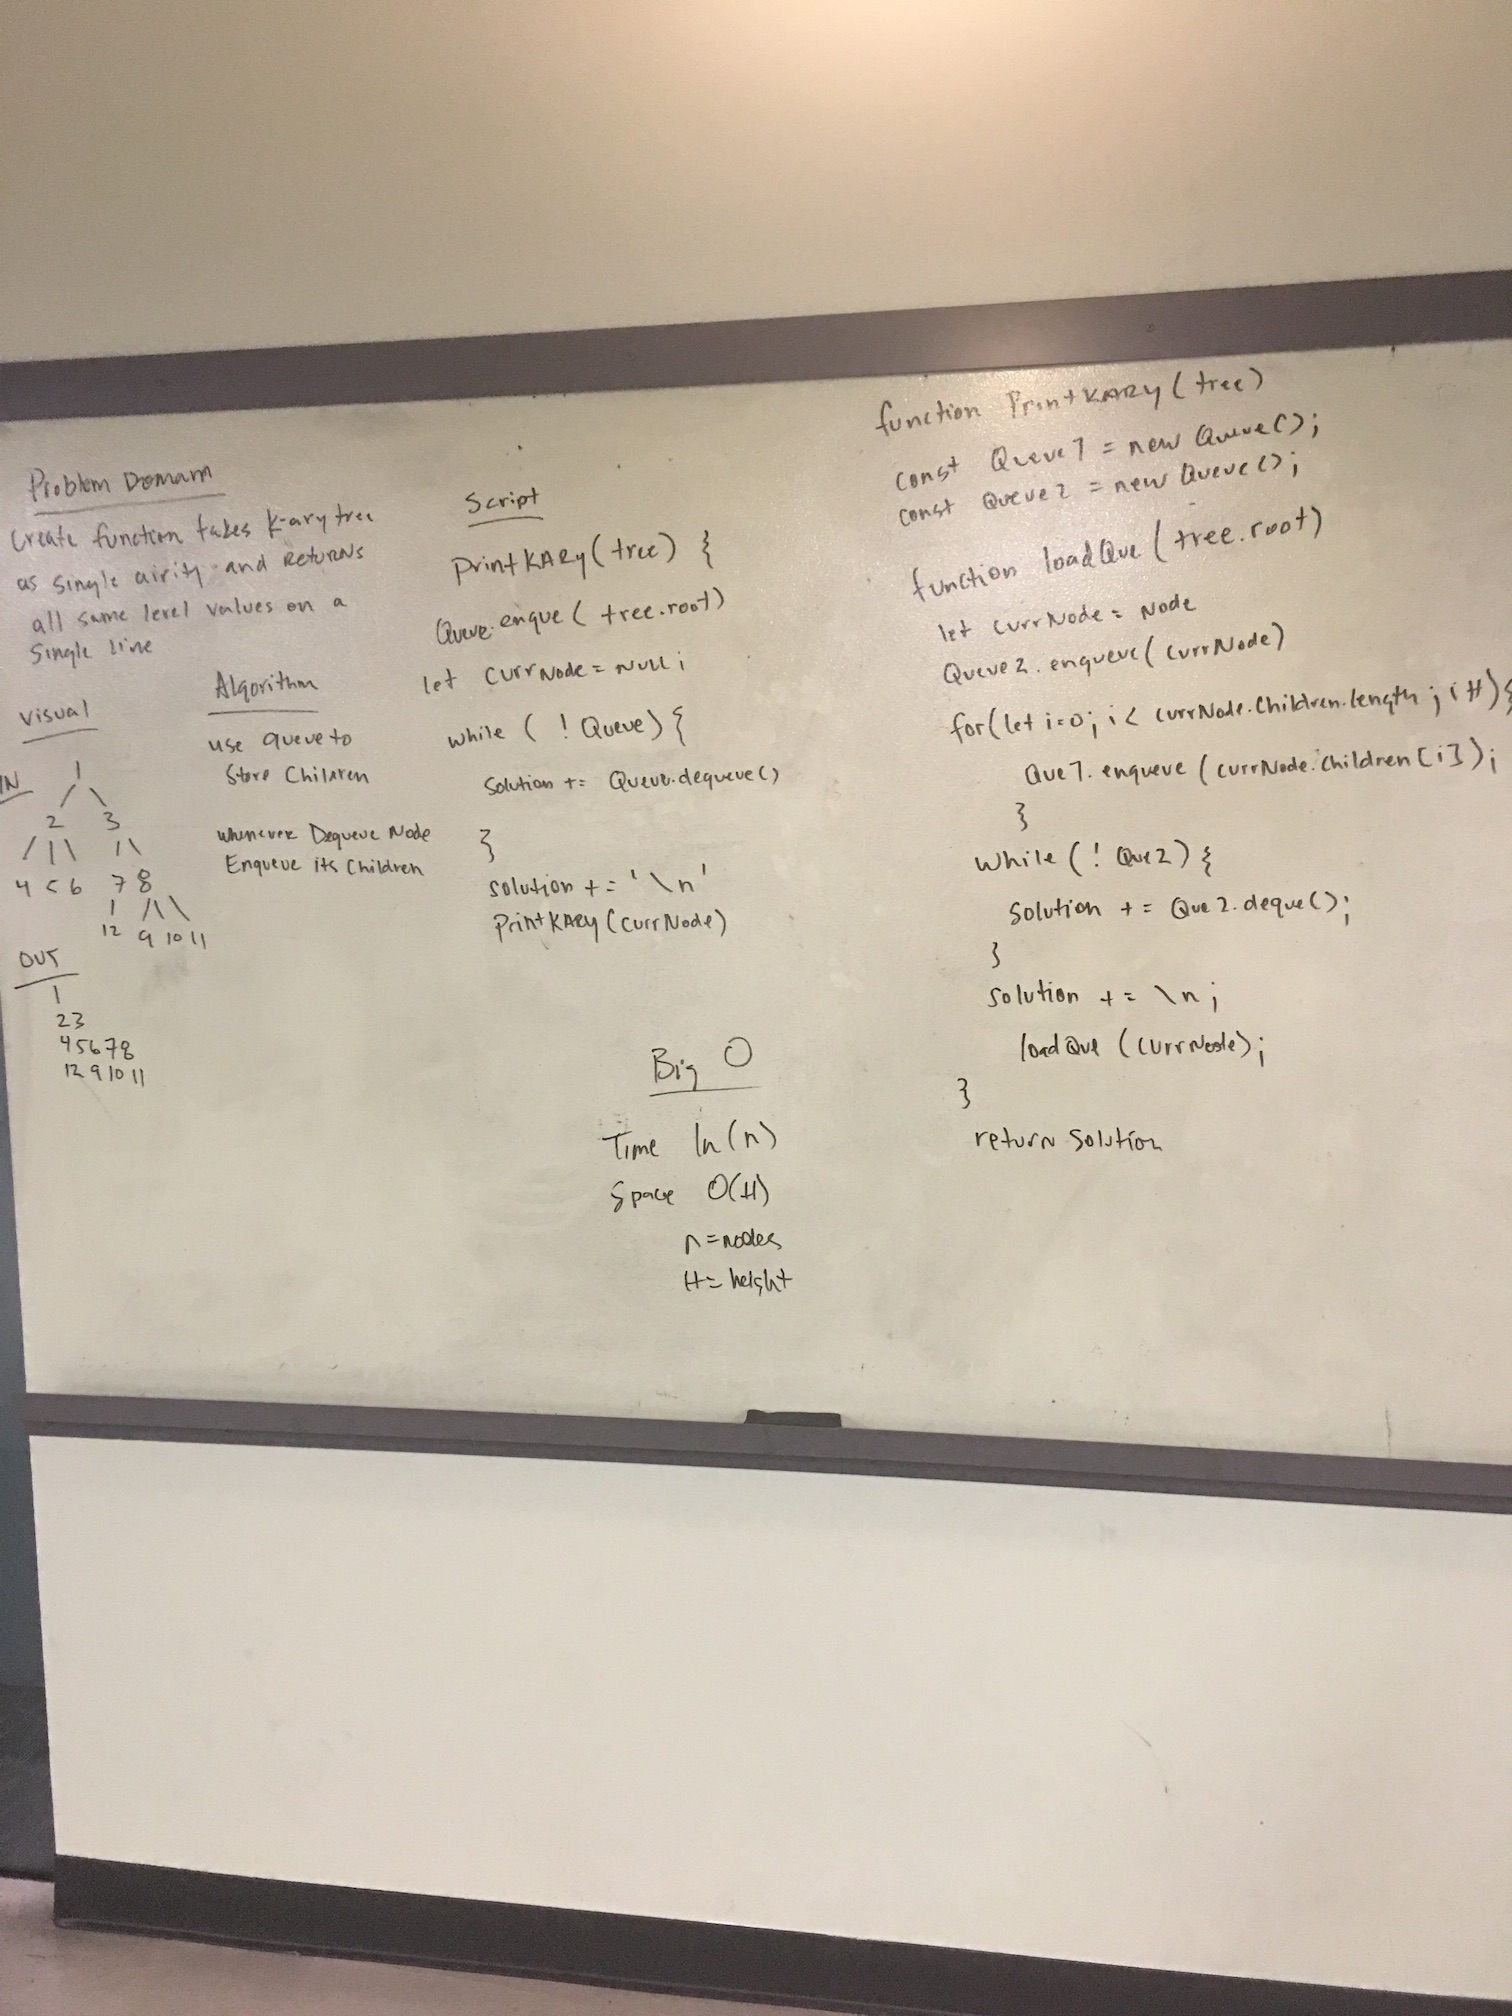 Problem Domain
Create function takes k-ary tree
as single airity and Returns
all same level values on a
Single line
Visual
IN
1
2 3
4 5 6 7 8
12 9 10 11
OUT
1
23
45678
12 9 10 11
Algorithm
use queue to
Store Children
whenever Dequeue Node
Enqueue its Children
Script
PrintKARy(tree) {
Queue.enque( tree.root)
let currNode = NULL;
while ( ! Queue) {
Solution += Queue.dequeue()
}
solution += '\n'
PrintKARy(currNode)
Big O
Time ln(n)
Space O(H)
n=nodes
H= height
function PrintKARY(tree)
const Queue1 = new Queue();
const Queue2 = new Queue();
function loadQue (tree.root)
let currNode = Node
Queue2.enqueue(currNode)
for(let i=0; i< currNode.Children.length; i++){
Que1.enqueue(currNode.Children[i]);
}
while(! Que2){
Solution += Que2.deque();
}
Solution += \n;
loadQue (currNode);
}
return Solution